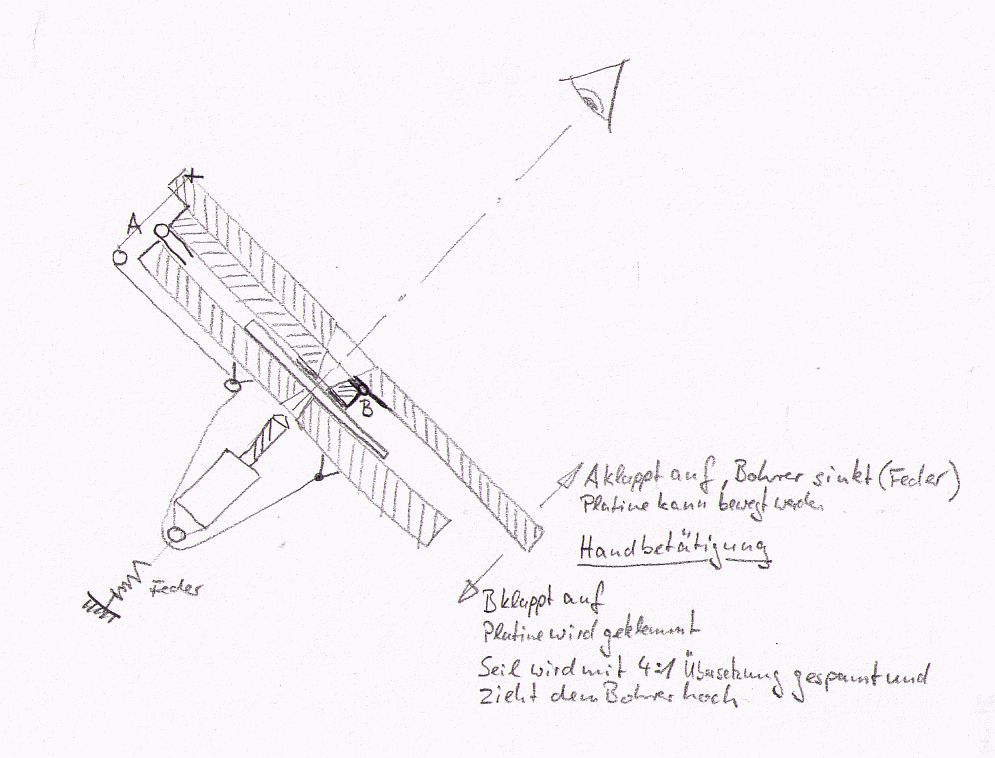 A
B
A klappt auf, Bohrer sinkt (Feder)
Platine kann bewegt werden
Handbetätigung
Feder
B klappt auf
Platine wird geklemmt
Seil wird mit 4:1 Übersetzung gespannt und
zieht den Bohrer hoch.